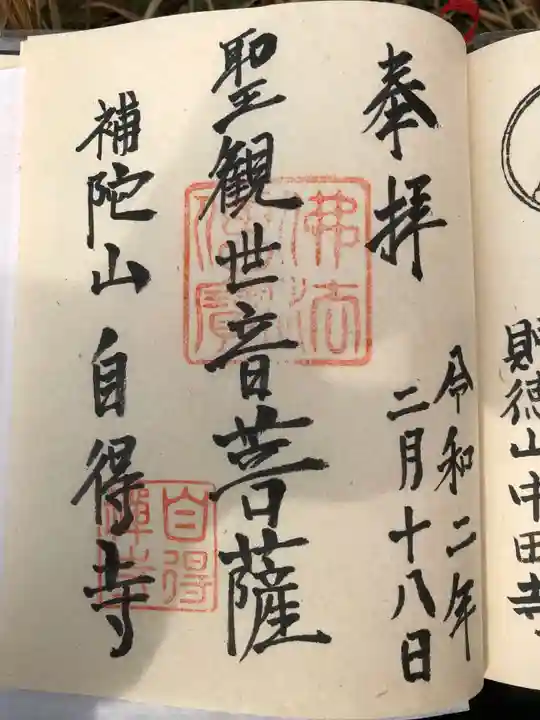 奉拝
令和二年
二月十八日
聖観世音菩薩
佛法僧寶
補陀山 自得寺
自得禅寺
財徳山中田寺